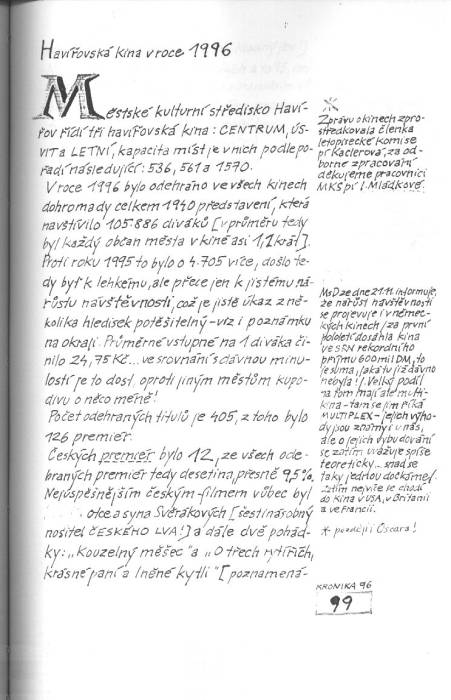 Havířovská kina v roce 1996
Městské kulturní středisko Haví-
řov řídí tři havířovská kina: CENTRUM, ÚS-
VIT a LETNÍ, kapacita míst je v nich podle po-
řadí následující: 536, 561 a 1570.
V roce 1996 bylo odehráno ve všech kinech
dohromady celkem 1940 představení, která
navštívilo 105.886 diváků [v průměru tedy
byl každý občan města v kině asi 1,2 krát].
Proti roku 1995 to bylo o 4.705 více, došlo te-
dy byť k lehkému, ale přece jen k jistému ná-
růstu návštěvnosti, což je jistě úkaz z ně-
kolika hledisek potěšitelný - viz i poznámku
na okraji. Průměrné vstupné na 1 diváka či-
nilo 24,75 Kč... ve srovnání s dávnou minu-
lostí je to dost, oproti jiným městům kupo-
divu o něco méně!
Počet odehraných titulů je 405, z toho bylo
126 premiér.
Českých premiér bylo 12, ze všech ode-
braných premiér tedy desetina, přesně 9,5%.
Nejúspěšnějším českým filmem vůbec byl
otce a syna Svěrákových [šestinásobný
nositel ČESKÉHO LVA!] a dále dvě pohád-
ky: "Kouzelný měšec" a "O třech rytířích,
krásné paní a lněné kytli" [poznamená-
Zprávu o kinech zpro-
středkovala členka
letopisecké komise
pí Kaclerová, za od-
borné zpracování
děkujeme pracovnici
MKS pí I. Mládkové.
MsD ze dne 21.11. informuje,
že nárůst návštěvnosti
se projevuje i v němec-
kých kinech / za první
pololetí dosáhla kina
ve SRN rekordního
příjmu 600 mil DM, to
je suma, jaká tu již dávno
nebyla!/. Velký podíl
na tom mají ale multi-
kina - tam se jim říká
MULTIPLEX - jejich výho-
dy jsou známy i u nás,
ale o jejich vybudování
se zatím uvažuje spíše
teoreticky... snad se
taky jednou dočkáme!
Zatím nejvíce se chodí
do kina v USA, v Británii
a ve Francii.
* později i Oscara!
KRONIKA 96
99